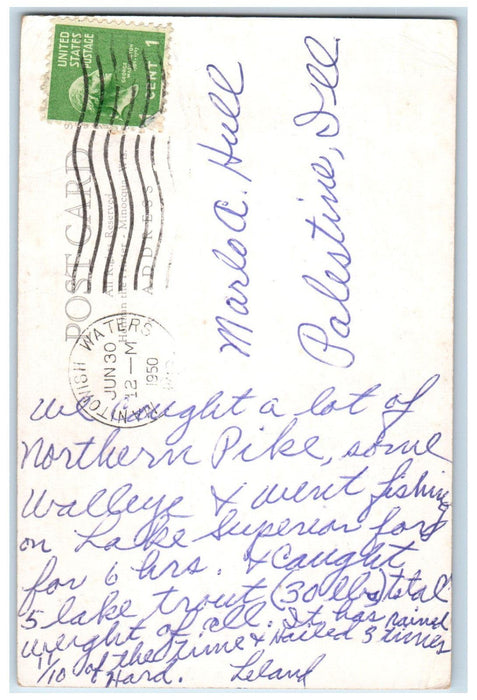 UNITED
STATES
POSTAGE
GEORGE
WASHINGTON
1 CENT
POST CARD
ADDRESS
MANITOWISH WATERS
JUN 30
12 — M
1950
WIS.
Marlo A. Hull
Palestine, Ill.
We caught a lot of
Northern Pike, some
Walleye & went fishing
on Lake Superior for
for 6 hrs. & caught
5 lake trout (30 lbs) total
weight of all. It has rained
9/10 of the time & Hailed 3 times
Hard. Leland